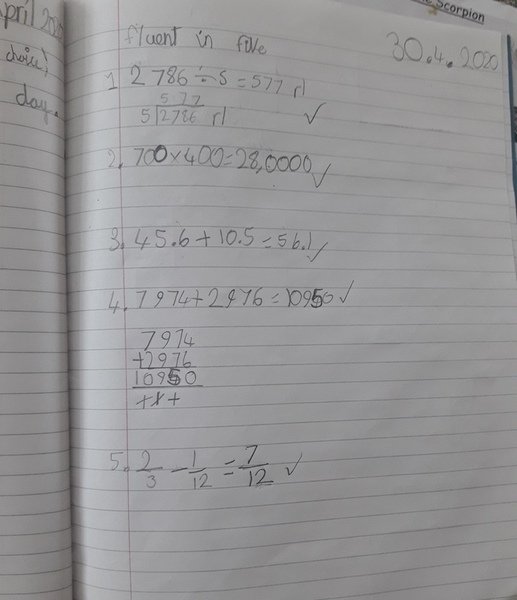 April 202
choice)
day.
Scorpion
fluent in five
30.4.2020
1 2786÷5=577 r1
577
5 2786 r1
2. 700×400=28,0000
3. 45.6+10.5=56.1
4. 7974+2976=10950
7974
+2976
10950
5. 2/3 - 1/12 = 7/12